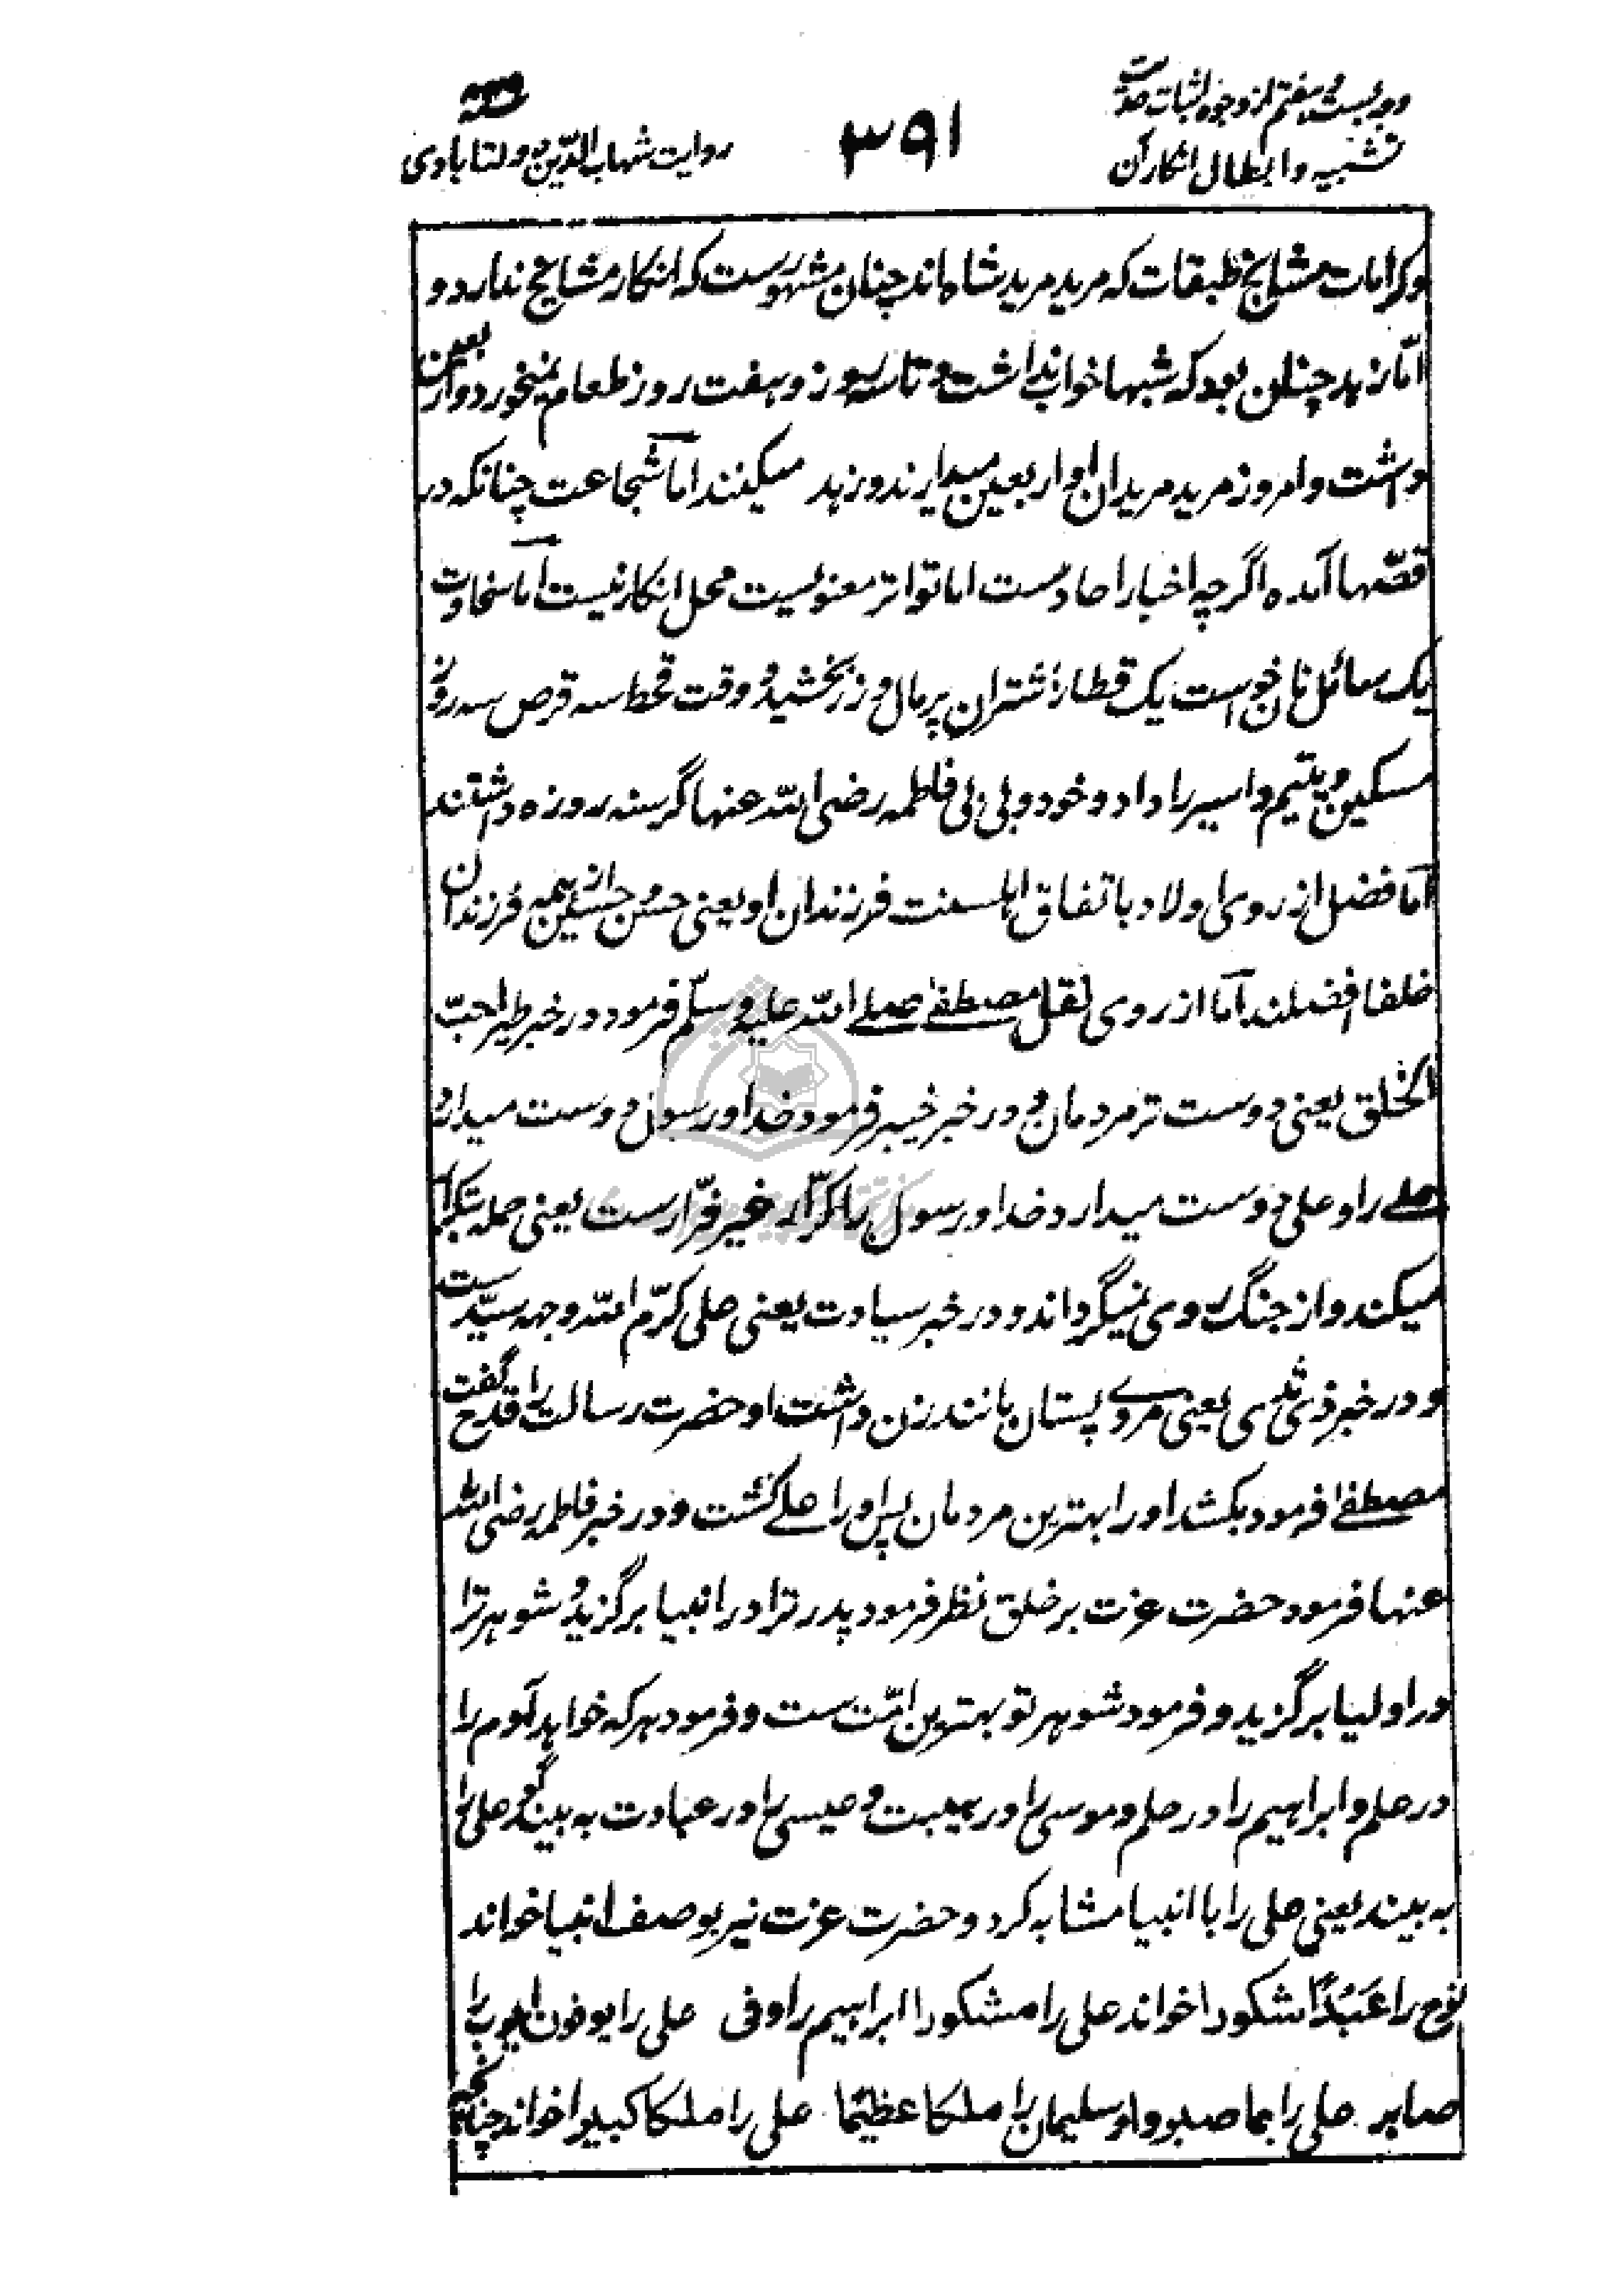 وجه بست و هفتم از وجوه اثبات حدیث
تشبیه و ابطال انکار آن
۳۹۱
روایت شهاب الدّین دولتابادی
و کرامات مشایخ طبقات که مرید مرید شاه اند چنان مشهورست که انکار مشایخ ندارد و
امّا زهد چنان بود که شبها خواب نداشت و تا سه روز و هفت روز طعام نمیخورد و اربعین
داشت و امروز مرید مریدان او اربعین میدارند و زهد میکنند اما شجاعت چنانکه در
قصّها آمده اگرچه اخبار احادست اما تواتر معنویست محل انکار نیست اما سخاوت
یک سائل نان خواست یک قطار شتران پر مال و زر بخشید و وقت قحط سه قرص سه روز
مسکین و یتیم و اسیر را داد و خود و بی بی فاطمه رضی الله عنها گرسنه روزه داشتند
اما فضل از روی اولاد باتفاق اهلسنت فرزندان او یعنی حسن حسین از همه فرزندان
خلفا افضلند اما از روی نقل مصطفے صلے الله علیه وسلّم فرمود در خبر طیر احبّ
الخلق یعنی دوست تر مردمان و در خبر خیبر فرمود خدا و رسول دوست میدارد
علے را و علی دوست میدارد خدا و رسول را کرّار غیر فرّارست یعنی حمله بتکرار
میکند و از جنگ روی نمیگرداند و در خبر سیادت یعنی علی کرّم الله وجهه سیّدست
و در خبر ذی ثدی یعنی مردے پستان مانند زن داشت او حضرت رسالت را قدح گفت
مصطفے فرمود بکشد او را بهترین مردمان پس او را علے کشت و در خبر فاطمه رضی الله
عنها فرمود حضرت عزت بر خلق نظر فرمود پدر ترا در انبیا برگزید و شوهر ترا
در اولیا برگزید و فرمود شوهر تو بهترین امّت ست و فرمود هر که خواهد آدم را
در علم و ابراهیم را در حلم و موسی را در هیبت و عیسی را در عبادت به بیند گو علی را
به بیند یعنی علی را با انبیا مشابه کرد و حضرت عزت نیز بوصف انبیا خواند
نوح را عَبْدًا شکورا خواند علی را مشکورا ابراهیم را وفی علی را یوفون ایوب را
صابر علی را بما صبروا و سلیمان را ملکا عظیما علی را ملکا کبیرا خواند چنانچه